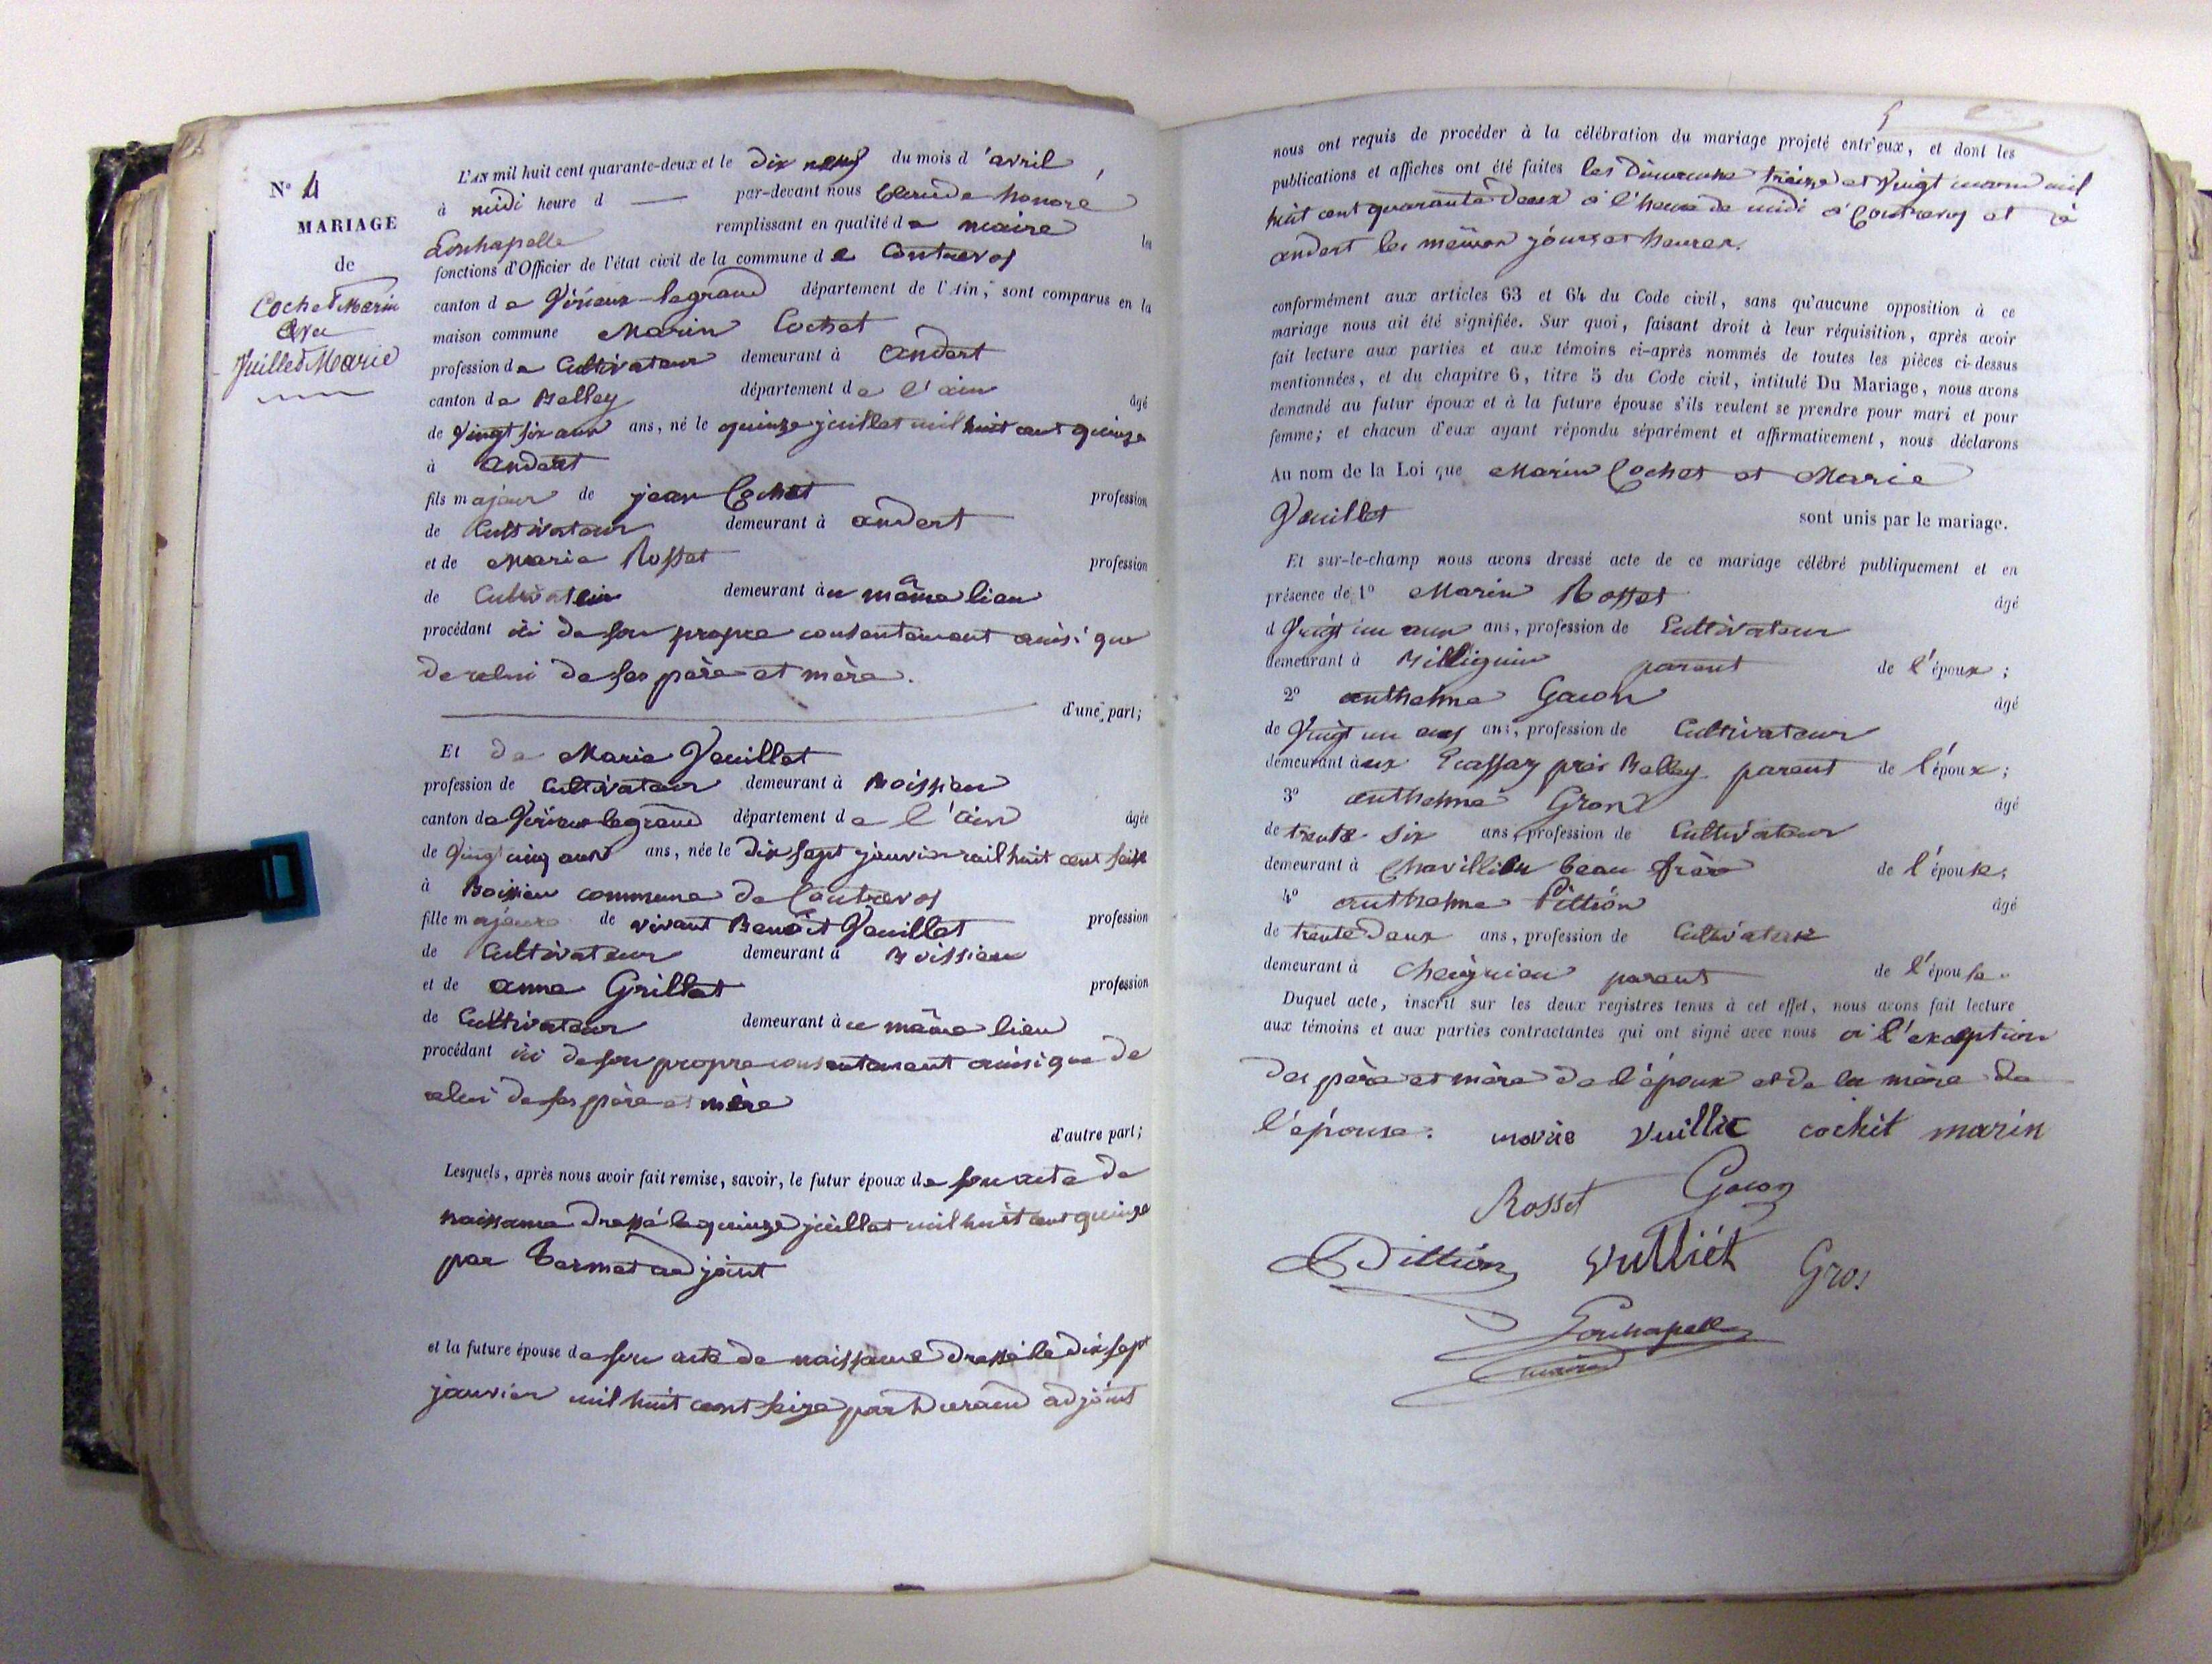 N° 4
MARIAGE
de
Cochet Marin
avec
Vuillet Marie
L'AN mil huit cent quarante-deux et le dix neuf du mois d'avril
à midi heure d — par-devant nous Claude honoré
Lonchapelle remplissant en qualité de maire les
fonctions d'Officier de l'état civil de la commune de Contrevos
canton de Virieux-legrand département de l'Ain, sont comparus en la
maison commune Marin Cochet
profession de Cultivateur demeurant à andert
canton de Belley département de l'ain âgé
de vingt six ans ans, né le quinze juillet mil huit cent quinze
à andert
fils majeur de jean Cochet profession
de Cultivateur demeurant à andert
et de Marie Rosset profession
de Cultivateur demeurant àu même lieu
procédant ici de son propre consentement ainsi que
de celui de ses père et mère.
d'une part;
Et de Marie Veuillet
profession de Cultivateur demeurant à Boissieu
canton de Virieux legrand département de l'ain âgée
de vingt cinq ans ans, née le dix sept janvier mil huit cent seize
à Boissieu commune de Contrevos
fille majeure de vivant Benoît Veuillet profession
de Cultivateur demeurant à Boissieu
et de anne Grillet profession
de Cultivateur demeurant à ce même lieu
procédant ici de son propre consentement ainsi que de
celui de ses père et mère
d'autre part;
Lesquels, après nous avoir fait remise, savoir, le futur époux de son acte de
naissance dressé le quinze juillet mil huit cent quinze
par adjoint
et la future épouse de son acte de naissance dressé le dix sept
janvier mil huit cent seize par Durand adjoint
nous ont requis de procéder à la célébration du mariage projeté entr'eux, et dont les
publications et affiches ont été faites les Dimanche treize et vingt mars mil
huit cent quarante deux à l'heure de midi à Contrevos et à
andert les mêmes jours et heures.
conformément aux articles 63 et 64 du Code civil, sans qu'aucune opposition à ce
mariage nous ait été signifiée. Sur quoi, faisant droit à leur réquisition, après avoir
fait lecture aux parties et aux témoins ci-après nommés de toutes les pièces ci-dessus
mentionnées, et du chapitre 6, titre 5 du Code civil, intitulé Du Mariage, nous avons
demandé au futur époux et à la future épouse s'ils veulent se prendre pour mari et pour
femme; et chacun d'eux ayant répondu séparément et affirmativement, nous déclarons
Au nom de la Loi que Marin Cochet et Marie
Veuillet sont unis par le mariage.
Et sur-le-champ nous avons dressé acte de ce mariage célébré publiquement et en
présence de 1° Marin Rosset âgé
d vingt un ans ans, profession de Cultivateur
demeurant à Billignin parent de l'époux;
2° anthelme Gacon âgé
de vingt un ans ans, profession de Cultivateur
demeurant aux Ecassaz près Belley parent de l'époux;
3° anthelme Gros âgé
de trente six ans, profession de Cultivateur
demeurant à Chavillieu beau frère de l'épouse;
4° anthelme Pittion âgé
de trente deux ans, profession de Cultivateur
demeurant à Cheignieu parent de l'épouse.
Duquel acte, inscrit sur les deux registres tenus à cet effet, nous avons fait lecture
aux témoins et aux parties contractantes qui ont signé avec nous à l'exception
des père et mère de l'époux et de la mère de
l'épouse. marie vuillit cochit marin
Rosset Gacon
Pittion vulliét Gros
Lonchapelle
maire